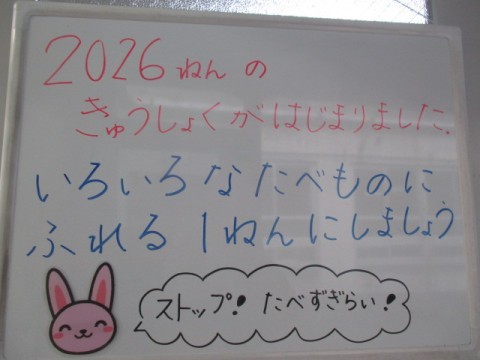 2026ねんの
きゅうしょくがはじまりました.
いろいろなたべものに
ふれる1ねんにしましょう
ストップ!たべずぎらい!